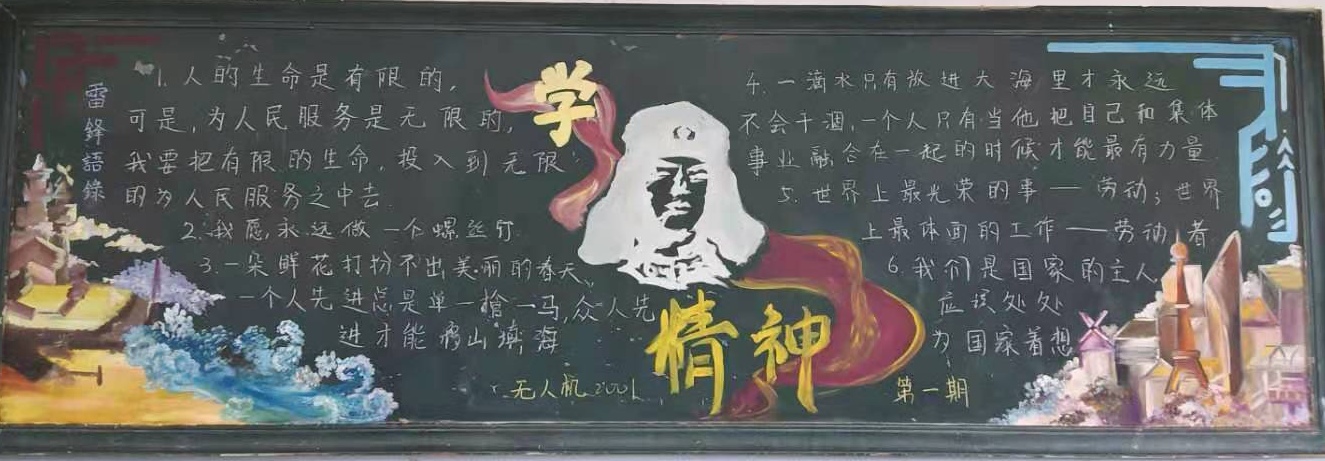 雷鋒語錄
1.人的生命是有限的,
可是,为人民服务是无限的,
我要把有限的生命,投入到无限
的为人民服务之中去.
2.我愿永远做一个螺丝钉
3.一朵鲜花打扮不出美丽的春天,
一个人先进总是单一槍一马,众人先
进才能移山填海
学
精神
无人机2001
4.一滴水只有放进大海里才永远
不会干涸,一个人只有当他把自己和集体
事业融合在一起的时候才能最有力量
5.世界上最光荣的事——劳动;世界
上最体面的工作——劳动者
6.我们是国家的主人
应该处处
为国家着想
第一期